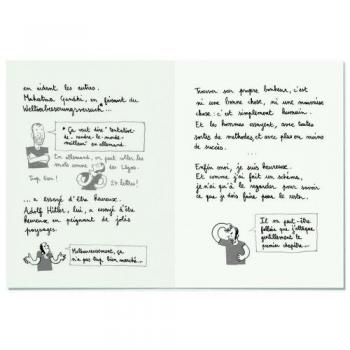 en aidant les autres.
Mahatma Gandhi, en faisant du
Weltverbesserungsversuch*...
* Ça veut dire "tentative-
de-rendre-le-monde-
meilleur" en allemand.
En allemand, on peut coller les
mots comme des Légos.
Trop bien!
Et lettres!
... a essayé d'être heureux.
Adolf Hitler, lui, a essayé d'être
heureux en peignant de jolis
paysages.
Malheureusement, ça
n'a pas trop bien marché...
Trouver son propre bonheur, c'est
ni une bonne chose, ni une mauvaise
chose: c'est simplement humain.
Et les hommes essayent, avec toutes
sortes de méthodes et avec plus ou moins
de succès.
...
Enfin moi, je suis heureux.
Et comme j'ai fait un schéma,
je n'ai qu'à le regarder pour savoir
ce que je dois faire pour le rester.
Il va peut-être
falloir que j'attaque
gentillement le
premier chapitre...